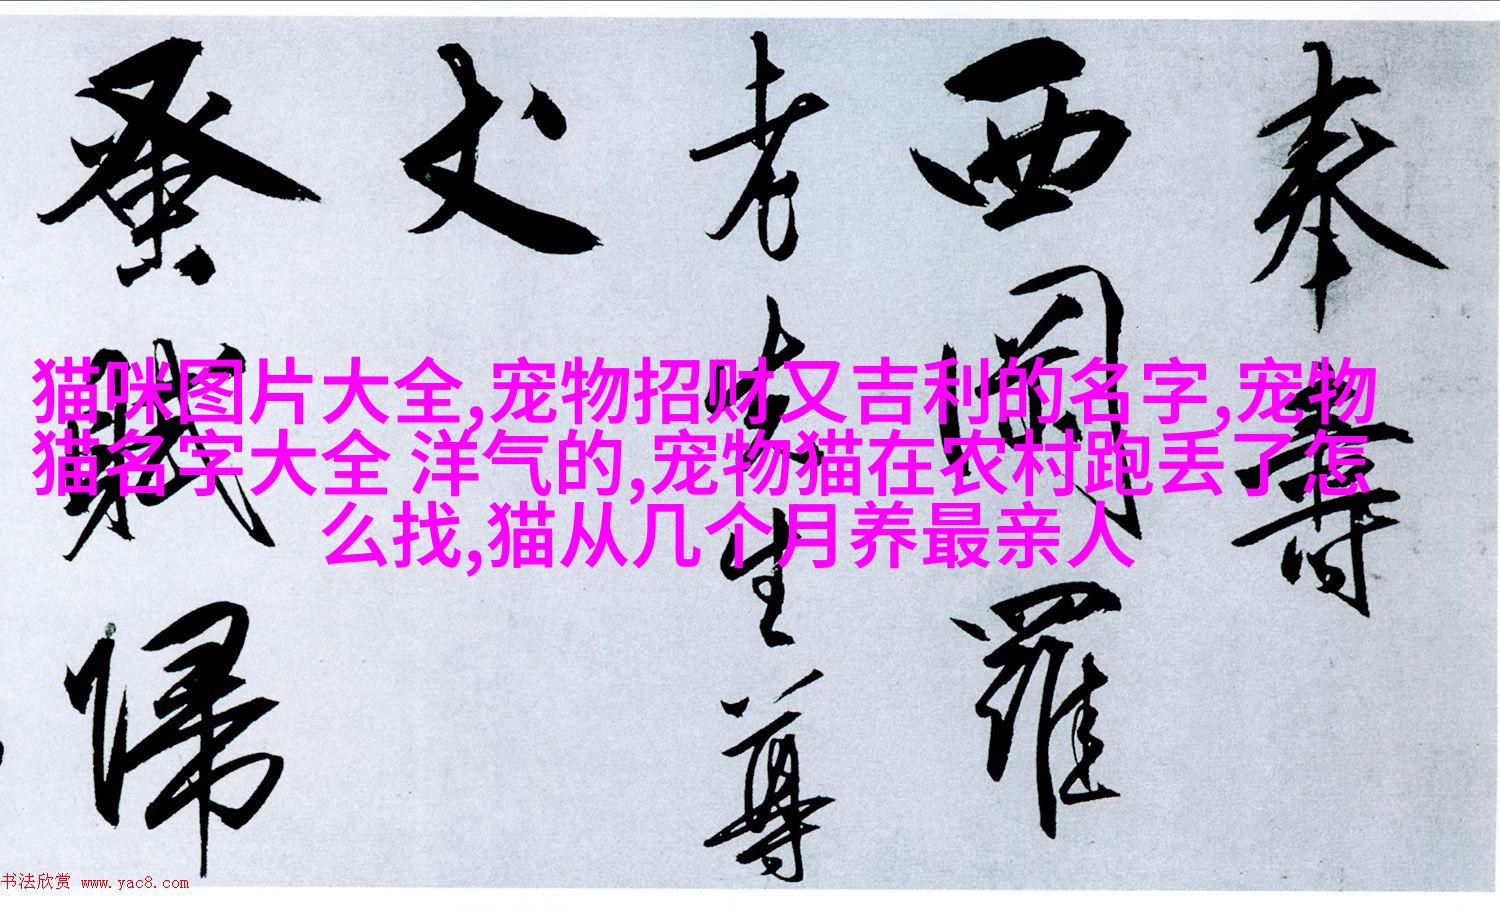 奉壽
西羅
老先生尊
丈
蚤賦歸
猫咪图片大全,宠物招财又吉利的名字,宠物
猫名字大全 洋气的,宠物猫在农村跑丢了怎
么找,猫从几个月养最亲人
书法欣赏 www.yac8.com